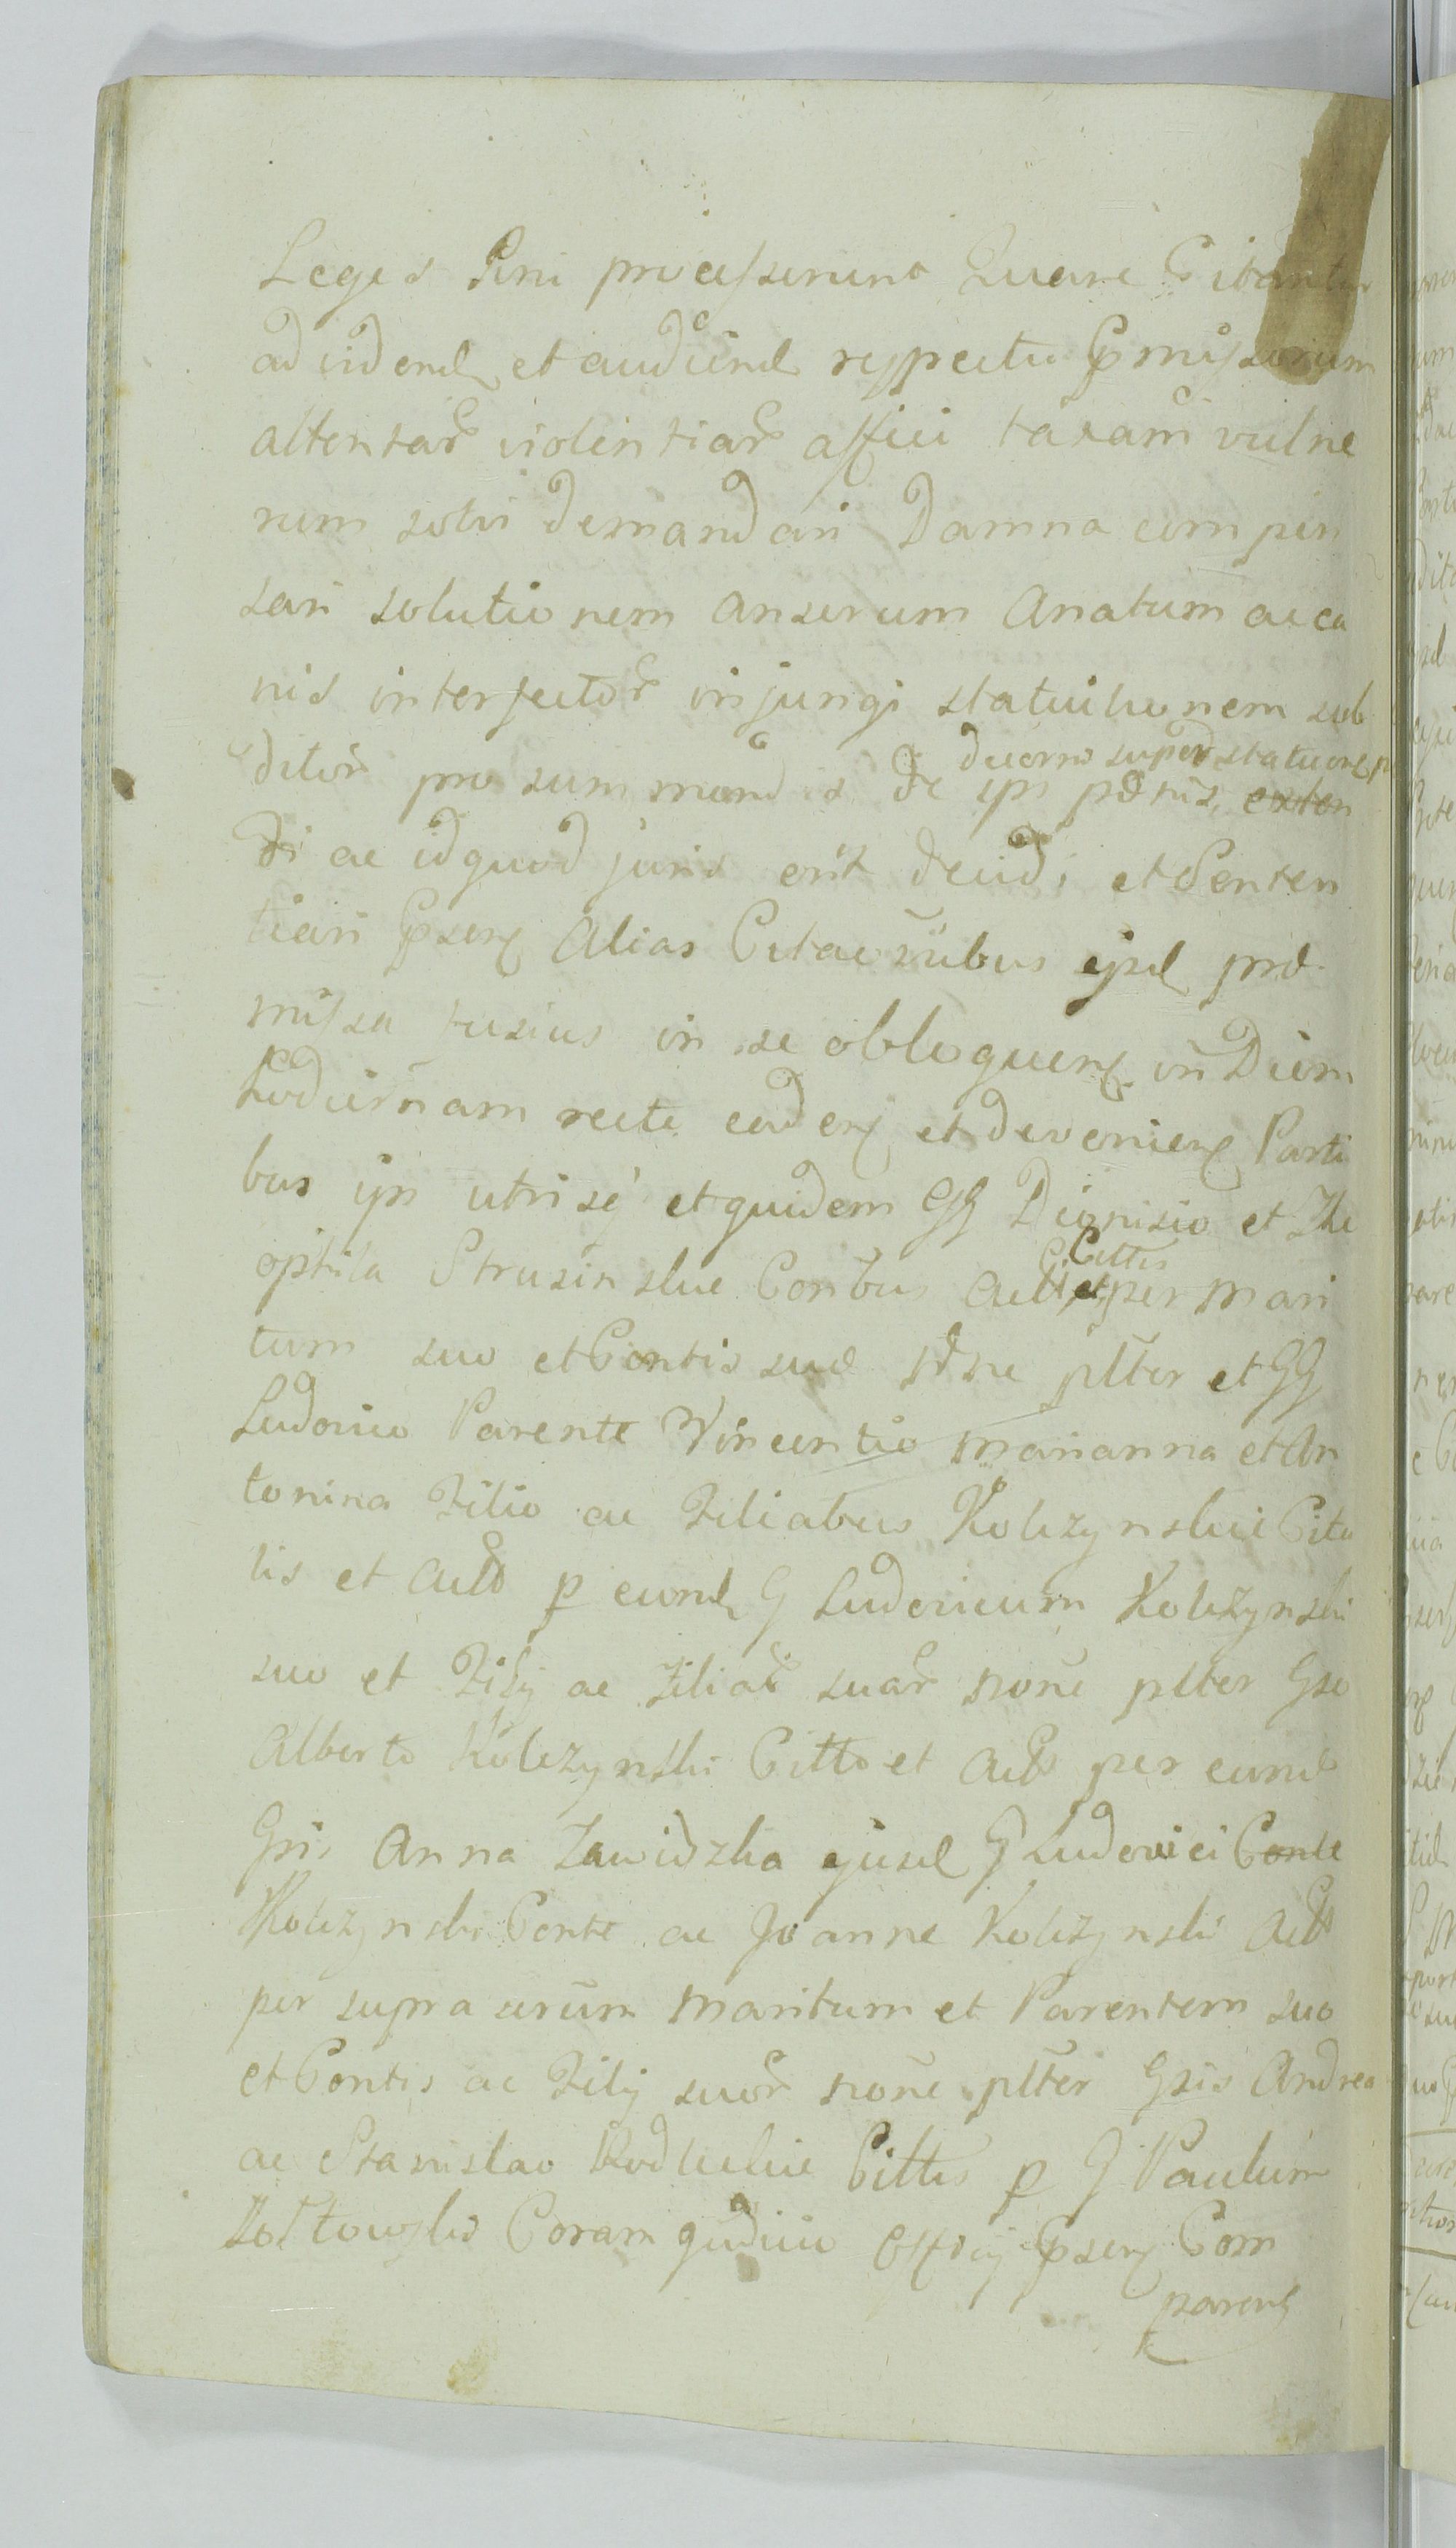 Leges Pćni processerunt Quare Citantur
ad videnđ et audiend respectu Pmissorum
attentar̃ violentiar̃ affici taxam vulne
rum solvi demandari Damna compen
sari solutionem anserum Anatum ac ca
nis interfector̃ injungi statuitionem sub
ditor̃ pro summend s de ips pœnis, exten
decerni super statuoneɱ
di ac id quod juris erit decidi et Senten
tiari Psens Alias Citaõnibus ejsd præ
missa fusius in se obloquenɱ in Diem
hodiernam recte cadenɱ et devenienɱ Parti
bus ips utrisq et quidem GG Dionisio et The
ophila Strusinskie Conbus Actt et per Mari
Cittis
tum suo et Contis suæ nõne pltter et GG
Ludovico Parente Vincentio Marianna et An
tonina Filio ac Filiabus Kolczynskie Cita
tis et Actt p eund G Ludovicum Kolczynski
suo et Filij ac Filiar̃ suar̃ nõne pltter Gso
Alberto Kolczynski Citto et Actt per eund
Gsis Anna Zawidzka ejusd G Ludovici Conte
Kolczynski Conte ac Joanne Kolczynski Actt
per supra serum Maritum et Parentem suo
et Contis ac Filij suor̃ nõne pltter Gsis Andrea
ac Stanislao Cittis p G Paulum
Zołtowski Coram Judicio Officij Psenɱ Com
parenɱ